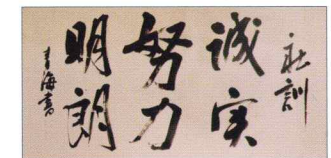 社訓
誠実
努力
明朗
青海書